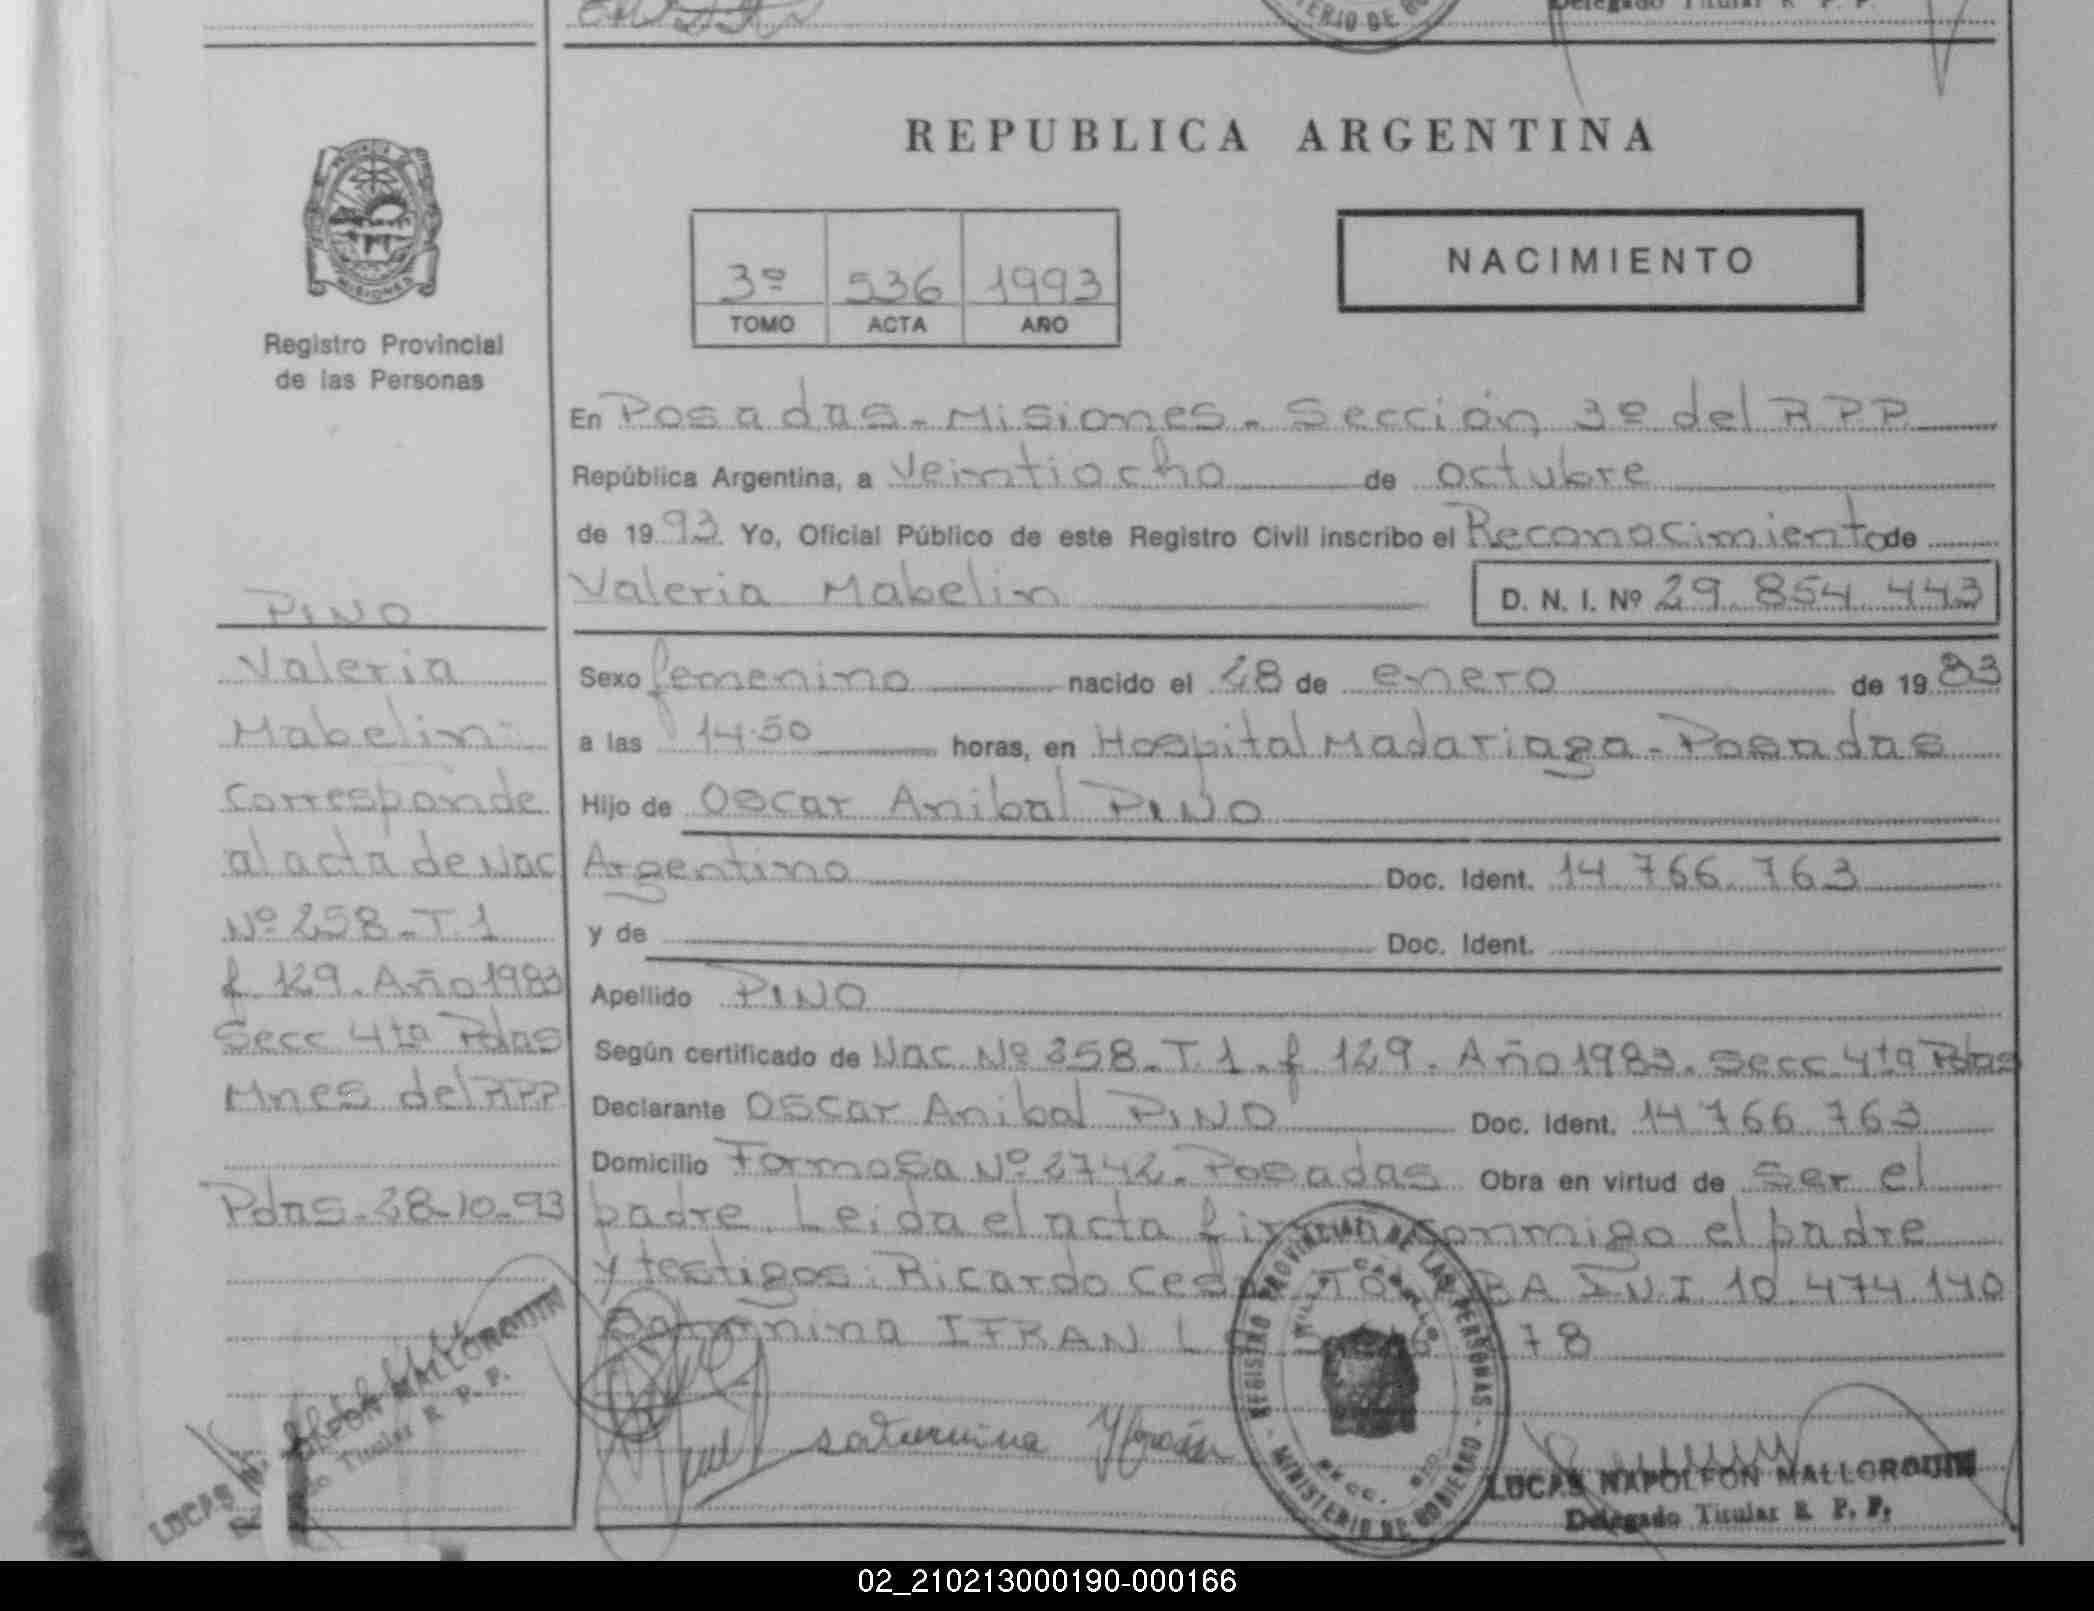 Delegado Titular R. P. P.
REPUBLICA ARGENTINA
PROVINCIA DE
MISIONES
Registro Provincial
de las Personas
3º 536 1993
TOMO ACTA AÑO
NACIMIENTO
En Posadas - Misiones - Sección 3º del R.P.P.
República Argentina, a veintiocho de octubre
de 1993 Yo, Oficial Público de este Registro Civil inscribo el Reconocimiento de
Valeria Mabelin D. N. I. Nº 29.854.443
Sexo femenino nacido el 28 de enero de 1983
a las 14.50 horas, en Hospital Madariaga - Posadas
Hijo de Oscar Anibal PINO
Argentino Doc. Ident. 14.766.763
y de Doc. Ident.
Apellido PINO
Según certificado de Nac. Nº 258 - T.1 - f 129 - Año 1983 - Secc 4ta Pdas
Declarante Oscar Anibal PINO Doc. Ident. 14.766.763
Domicilio Formosa Nº 2742 - Posadas Obra en virtud de ser el
padre. Leida el acta firma conmigo el padre
y testigos: Ricardo TO BA 10.474.140
IFRAN L 78
saturnina Yfran
REGISTRO PROVINCIAL DE LAS PERSONAS - MINISTERIO DE GOBIERNO -
LUCAS NAPOLEON MALLORQUIN
Delegado Titular R. P. P.
PINO
Valeria
Mabelin:
Corresponde
al acta de Nac
Nº 258 - T.1
f 129. Año 1983
Secc 4ta Pdas
Mnes del RPP
Pdas. 28-10-93
LUCAS NAPOLEON MALLORQUIN
Titular R. P. P.
02_210213000190-000166